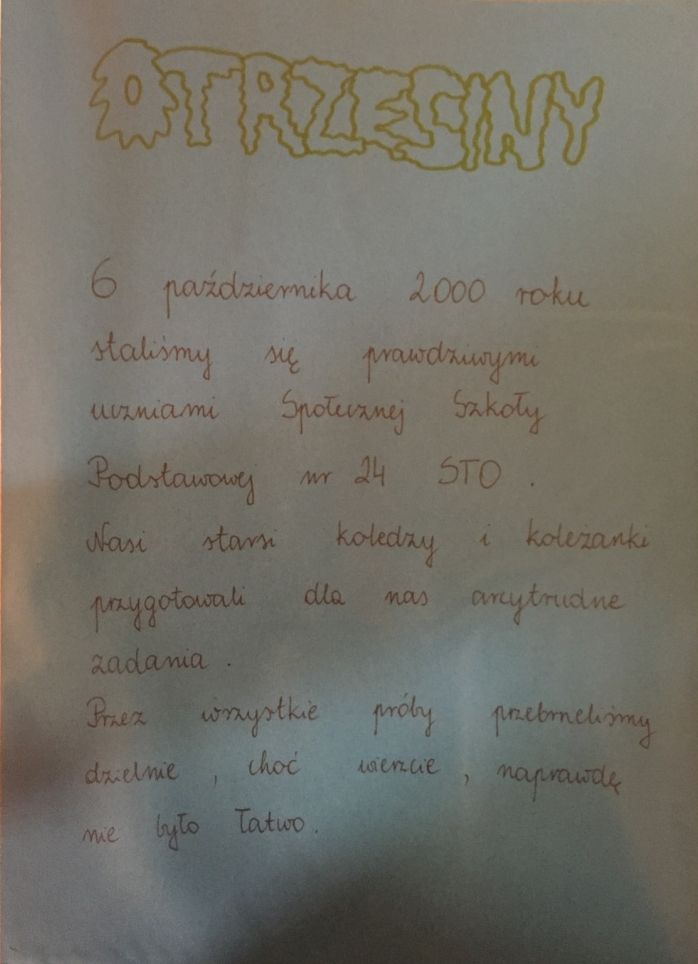 OTRZĘSINY
6 października 2000 roku
staliśmy się prawdziwymi
uczniami Społecznej Szkoły
Podstawowej nr 24 STO .
Nasi starsi koledzy i koleżanki
przygotowali dla nas arcytrudne
zadania .
Przez wszystkie próby przebrnęliśmy
dzielnie , choć wierzcie , naprawdę
nie było łatwo .